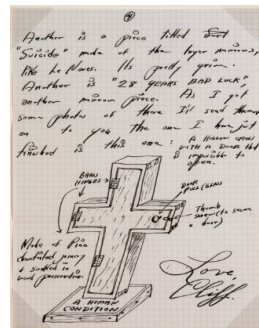 ④
Another is a piece titled
"Suicide" made of the larger mirrors,
like Le Nozes. Its pretty grim.
Another is "28 YEARS BAD LUCK",
another mirror piece. As I get
some photos of these I'll send them
on to you. The one I have just
finished is this one: A HUMAN CROSS
WITH A DOOR THAT
IS impossible to
open.
BRASS
HINGES
DOOR
Thumb
screw (to secure
door)
Made of Pine
& soaked in
wood preservative.
A HUMAN
CONDITION
Love,
Cliff.